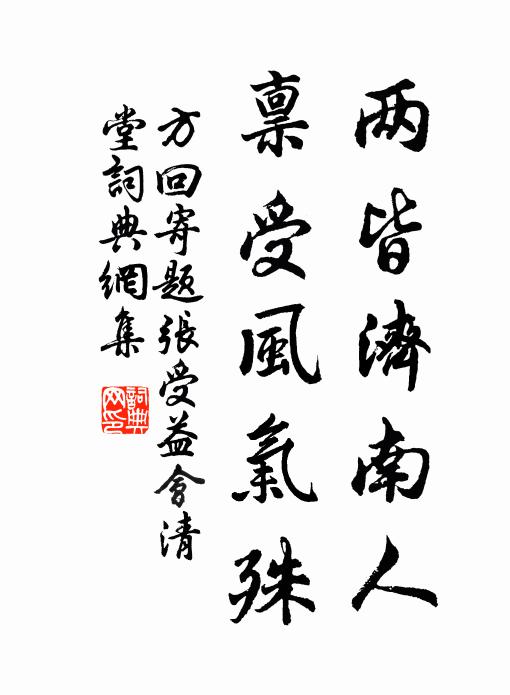 两皆濟南人
稟受風氣殊
方回寄題張受益會清
堂詞典網集
詞典
网印